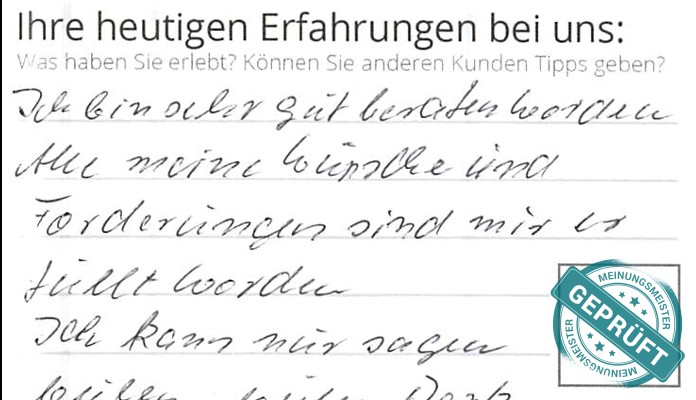 Ihre heutigen Erfahrungen bei uns:
Was haben Sie erlebt? Können Sie anderen Kunden Tipps geben?
Ich bin sehr gut beraten worden
Alle meine Wünsche und
Forderungen sind mir er
füllt worden
Ich kann nur sagen
Dank
MEINUNGSMEISTER
GEPRÜFT
MEINUNGSMEISTER
MEINUNGSMEISTER